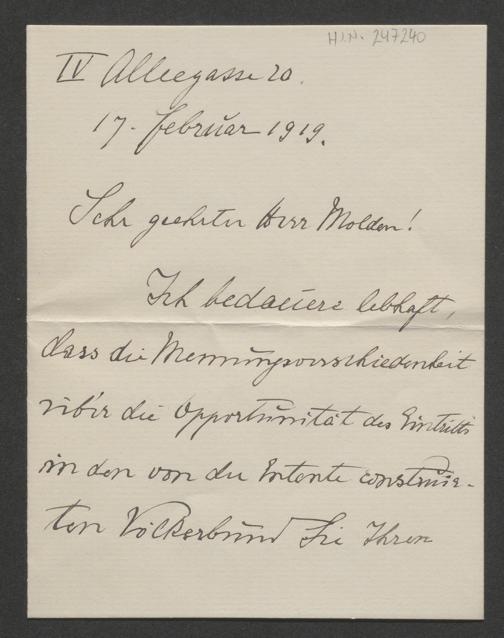 H.I.N. 247240
IV Alleegasse 20.
17. Februar 1919.
Sehr geehrter Herr Molden!
Ich bedauere lebhaft,
dass die Meinungsverschiedenheit
über die Opportunität des Eintritts
in den von der Entente construir-
ten Völkerbund Sie Ihren